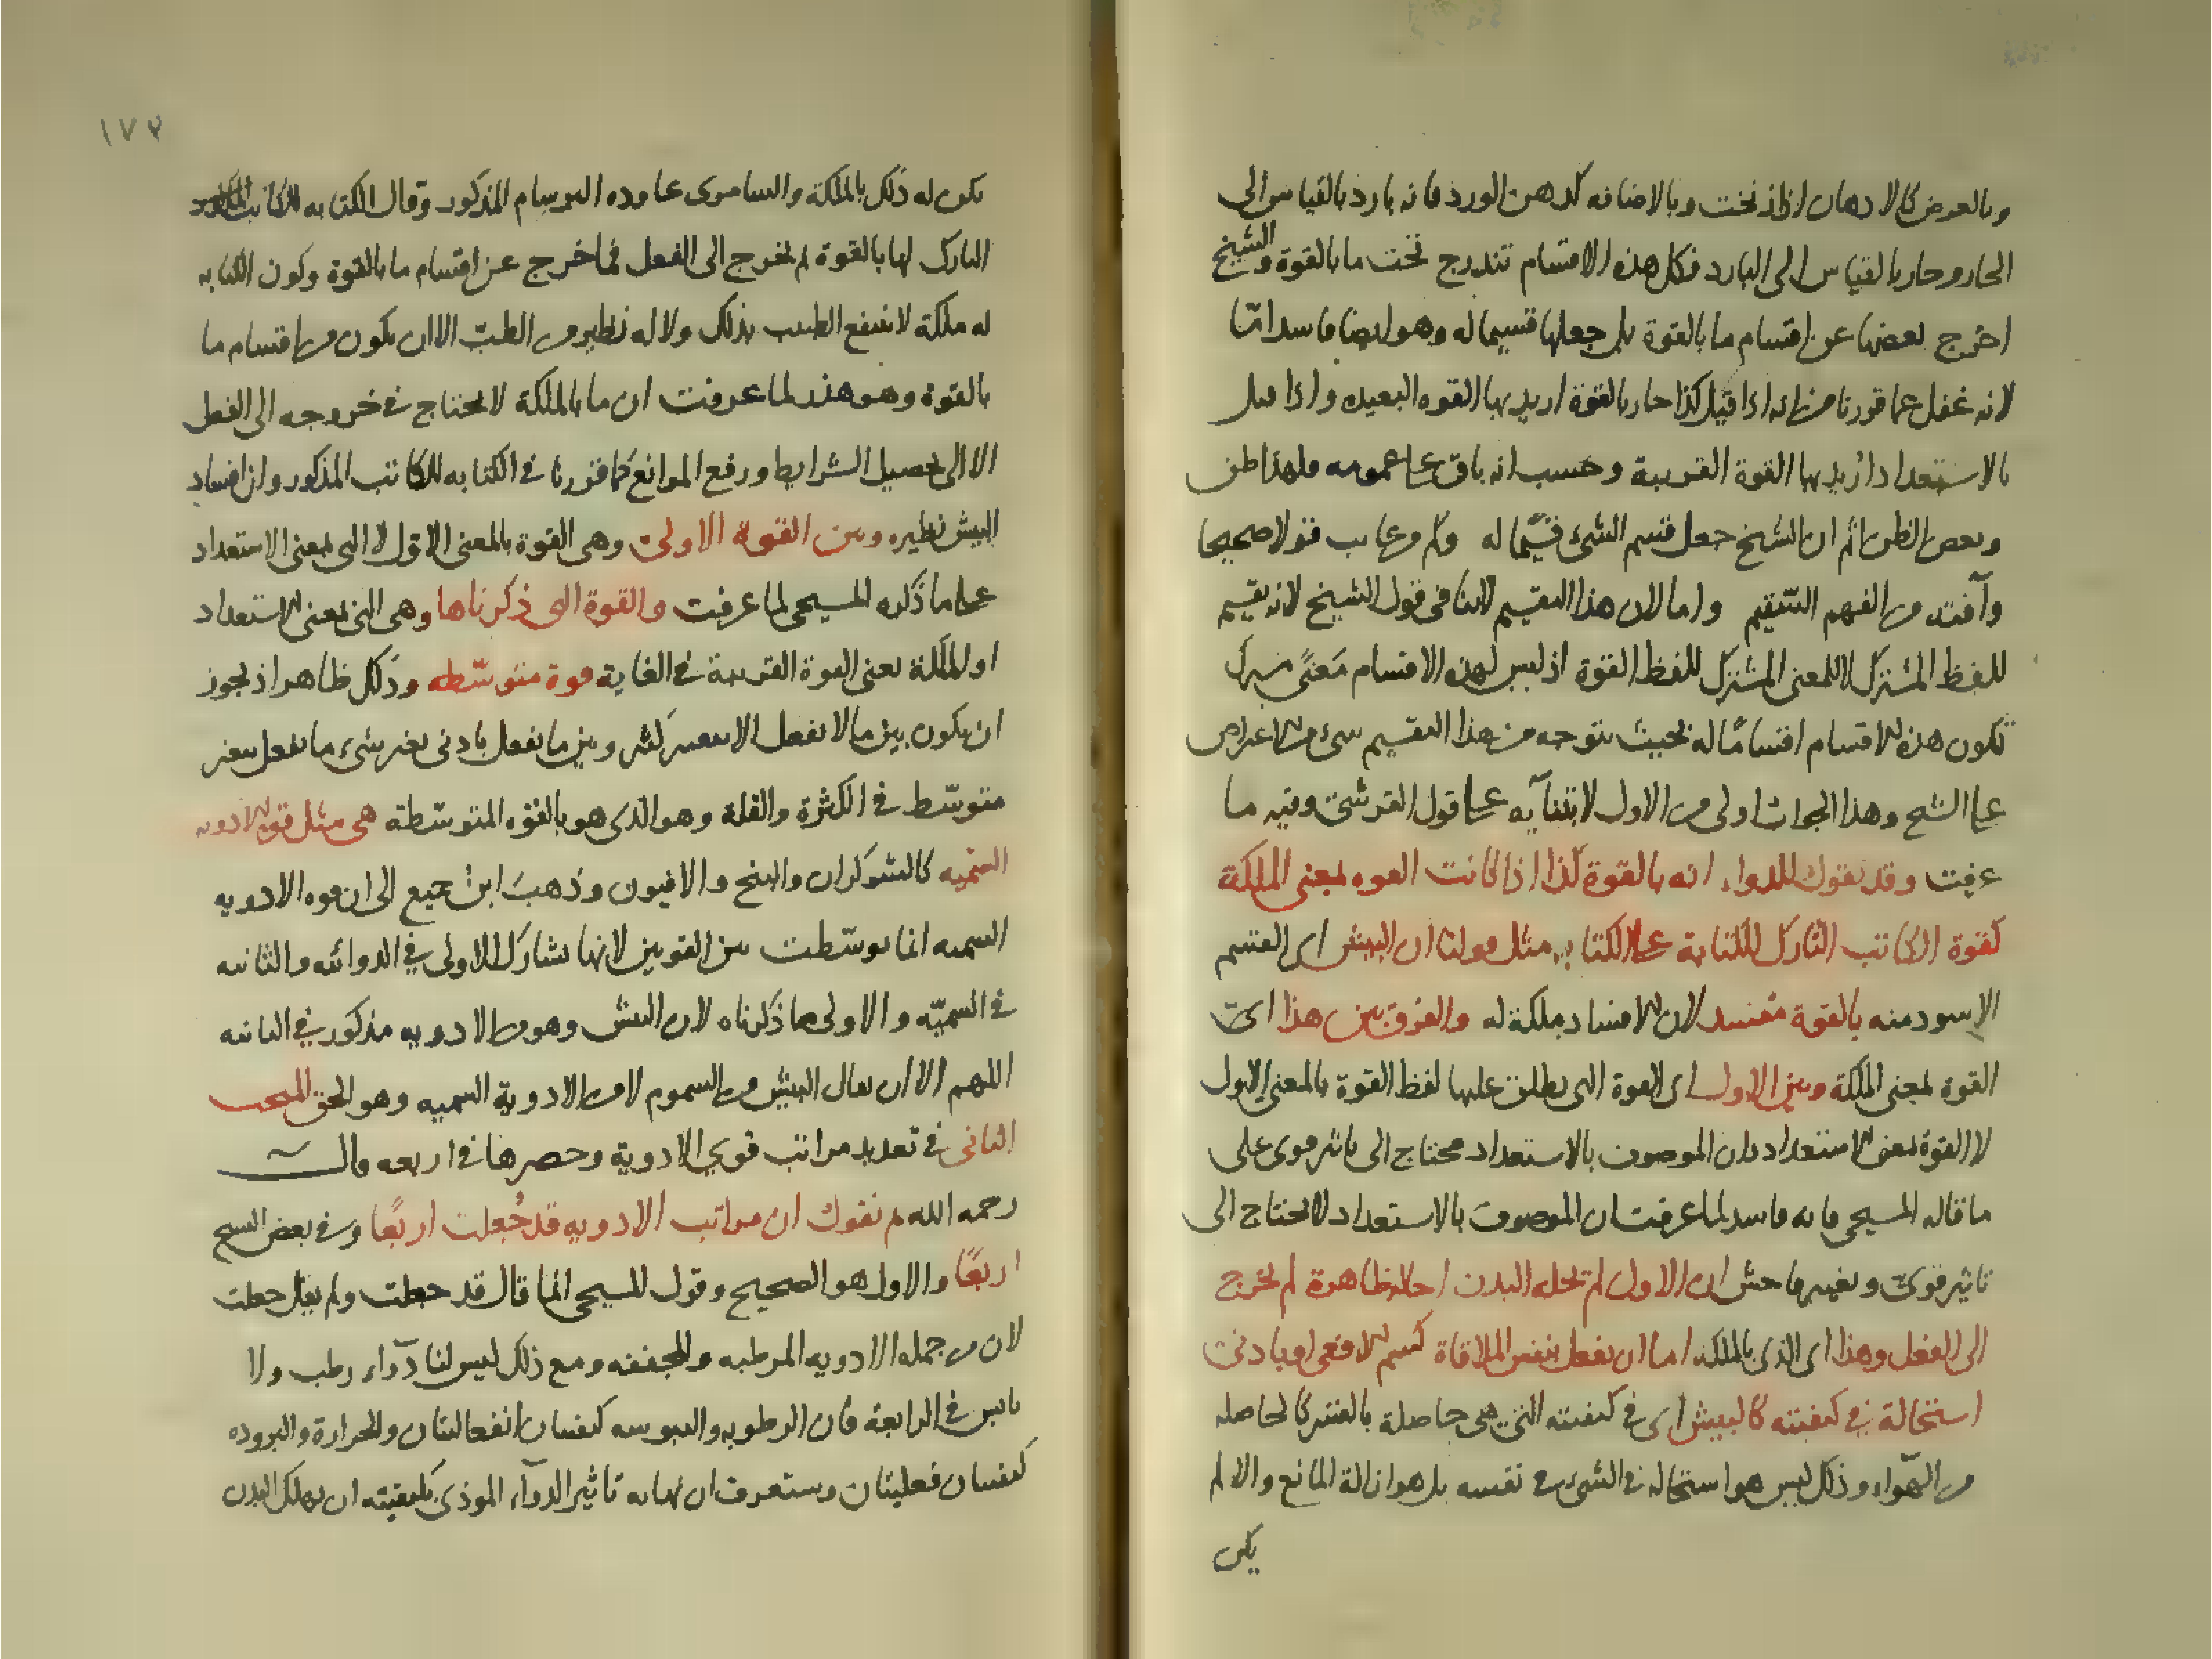 وبالعرض كالادهان اذا زنخت وبالاضافه كدهن الورد فانه بارد بالقياس الى
الحار وحار بالقياس الى البارد فكل هذه الاقسام تندرج تحت ما بالقوة والشيخ
اخرج بعضها عن اقسام ما بالقوة بل جعلها قسيما له وهو ايضا فاسد اما
لانه غفل عما قررنا من انه اذا قيل كذا حار بالقوة اريد بها القوه البعيده واذا قيل
بالاستعداد اريد بها القوة القريبة وحسب انه باق على عمومه فلهذا ظن
وبعض الظن اثم ان الشيخ جعل قسم الشئ قسيما له وكم من عايب قولا صحيحا
وآفته من الفهم السقيم واما لان هذا التقسيم لاينافى قول الشيخ لانه تقسيم
للفظ المشترك لا للمعنى المشترك للفظ القوة اذ ليس لهذه الاقسام معنى مشترك
تكون هذه الاقسام اقساما له بحيث يتوجه من هذا التقسيم شئ من الاعتراض
على الشيخ وهذا الجواب اولى من الاول لابتنآيه على قول القرشى وفيه ما
عرفت وقد نقول للدواء انه بالقوة كذا اذا كانت القوه بمعنى الملكة
كقوة الكاتب التارك للكتابة على الكتابه مثل قولنا ان البيش اى القسم
الاسود منه بالقوة مفسد لان الافساد ملكة له والفرق بين هذا اى
القوة بمعنى الملكة وبين الاول اى القوة التى يطلق عليها لفظ القوة بالمعنى الاول
لا القوة بمعنى الاستعداد فان الموصوف بالاستعداد محتاج الى تاثير قوى على
ما قاله المسيحى فانه فاسد لما عرفت ان الموصوف بالاستعداد لايحتاج الى
تاثير قوى وتغيير فاحش ان الاول لم تحله البدن احالة ظاهرة لم يخرج
الى الفعل وهذا اى الذى بالملكة اما ان يفعل بنفس الملاقاة كسم الافعى او بادنى
استحالة فى كيفيته كالبيش اى فى كيفيته التى هى حاصلة بالقسر كالحاصله
من الهوآء وذلك ليس هو استحالة فى الشئ فى نفسه بل هو ازالة المانع والا لم
يكن
١٧٢
يكون له ذلك بالملكة والسامرى عاوده البرسام المذكور وقال الكتابه للكاتب
التارك لها بالقوة لم يخرج الى الفعل فما خرج عن اقسام ما بالقوة وكون الكتابه
له ملكة لاينتفع الطبيب بذلك ولا له نظير من الطب الا ان يكون من اقسام ما
بالقوة وهو هذر لما عرفت ان ما بالملكة لايحتاج فى خروجه الى الفعل
الا الى تحصيل الشرايط ورفع الموانع كما قررنا فى الكتابه للكاتب المذكور وان افساد
البيش نظيره وبين القوة الاولى وهى القوة بالمعنى الاول لا التى بمعنى الاستعداد
على ما ذكره المسيحى لما عرفت والقوة التى ذكرناها وهى التى بمعنى الاستعداد
او الملكة بمعنى القوة القريبة فى الغاية قوة متوسّطه وذلك ظاهر اذ يجوز
ان يكون بين ما لا يفعل الا بتغير كثير وبين ما يفعل بادنى تغير شىء ما يفعل بتغير
متوسّط فى الكثرة والقلة وهو الذى هو بالقوه المتوسّطة هى مثل قوة الادويه
السّميه كالشوكران والبنج والافيون وذهب ابن جميع الى ان قوه الادويه
السميه انما توسّطت بين القوتين لانها تشارك الاولى فى الدوائيه والثانيه
فى السميّه والاولى ما ذكرناه لان البيش وهو من الادويه مذكور فى الثانيه
اللهم الا ان يقال البيش من السموم لا من الادوية السميه وهو الحق المبحث
الثانى فى تعديد مراتب قوى الادوية وحصرها فى اربعه قال
رحمه الله ثم نقول ان مراتب الادويه قد جُعلت اربعًا وفى بعض النسخ
اربعًا والاول هو الصحيح وقول المسيحى انما قال قد جعلت ولم يقل جعلت
لان من جمله الادويه المرطبه والمجففه ومع ذلك ليس لنا دوآء رطب ولا
يابس فى الرابعة فان الرطوبه واليبوسه كيفيتان انفعاليتان والحرارة والبروده
كيفيتان فعليتان وستعرف ان نهايه تاثير الدوآء الموذى بكيفيته ان يهلك البدن